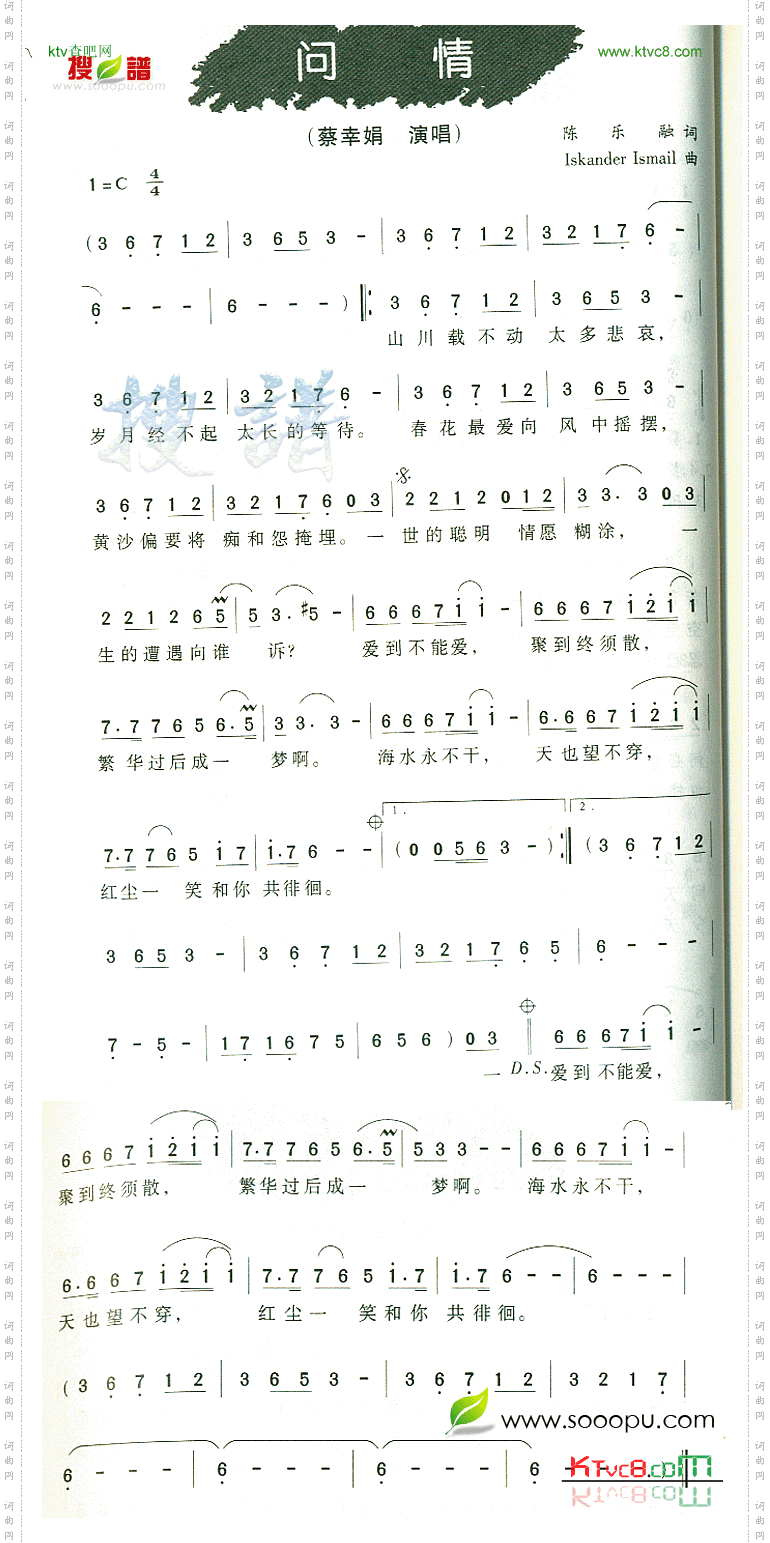 ktv查吧网
搜谱
www.sooopu.com
问 情
www.ktvc8.com
(蔡幸娟 演唱)
陈 乐 融 词
Iskander Ismail 曲
1=C 4/4
(3 6 7 1 2 | 3 6 5 3 - | 3 6 7 1 2 | 3 2 1 7 6 -
6 - - - | 6 - - - ) |: 3 6 7 1 2 | 3 6 5 3 - |
山川载不动 太多悲哀,
3 6 7 1 2 | 3 2 1 7 6 - | 3 6 7 1 2 | 3 6 5 3 - |
岁月经不起 太长的等待。 春花最爱向 风中摇摆,
3 6 7 1 2 | 3 2 1 7 6 0 3 | 2 2 1 2 0 1 2 | 3 3. 3 0 3
黄沙偏要将 痴和怨掩埋。一 世的聪明 情愿 糊涂, 一
2 2 1 2 6 5 | 5 3. #5 - | 6 6 6 7 i i - | 6 6 6 7 i 2 i i
生的遭遇向谁 诉? 爱到不能爱, 聚到终须散,
7. 7 7 6 5 6. 5 | 3 3. 3 - | 6 6 6 7 i i - | 6. 6 6 7 i 2 i i
繁华过后成一 梦啊。 海水永不干, 天也望不穿,
1.
2.
7. 7 7 6 5 i 7 | i. 7 6 - - | (0 0 5 6 3 - ) :| (3 6 7 1 2
红尘一 笑和你 共徘徊。
3 6 5 3 - | 3 6 7 1 2 | 3 2 1 7 6 5 | 6 - - - |
7 - 5 - | 1 7 1 6 7 5 | 6 5 6 ) 0 3 || 6 6 6 7 i i - |
一 D.S. 爱到不能爱,
6 6 6 7 i 2 i i | 7. 7 7 6 5 6. 5 | 5 3 3 - - | 6 6 6 7 i i - |
聚到终须散, 繁华过后成一 梦啊。 海水永不干,
6. 6 6 7 i 2 i i | 7. 7 7 6 5 i. 7 | i. 7 6 - - | 6 - - - |
天也望不穿, 红尘一 笑和你 共徘徊。
(3 6 7 1 2 | 3 6 5 3 - | 3 6 7 1 2 | 3 2 1 7 |
www.sooopu.com
6 - - - | 6 - - - | 6 - - - | 6 - - -
KTvc8.com